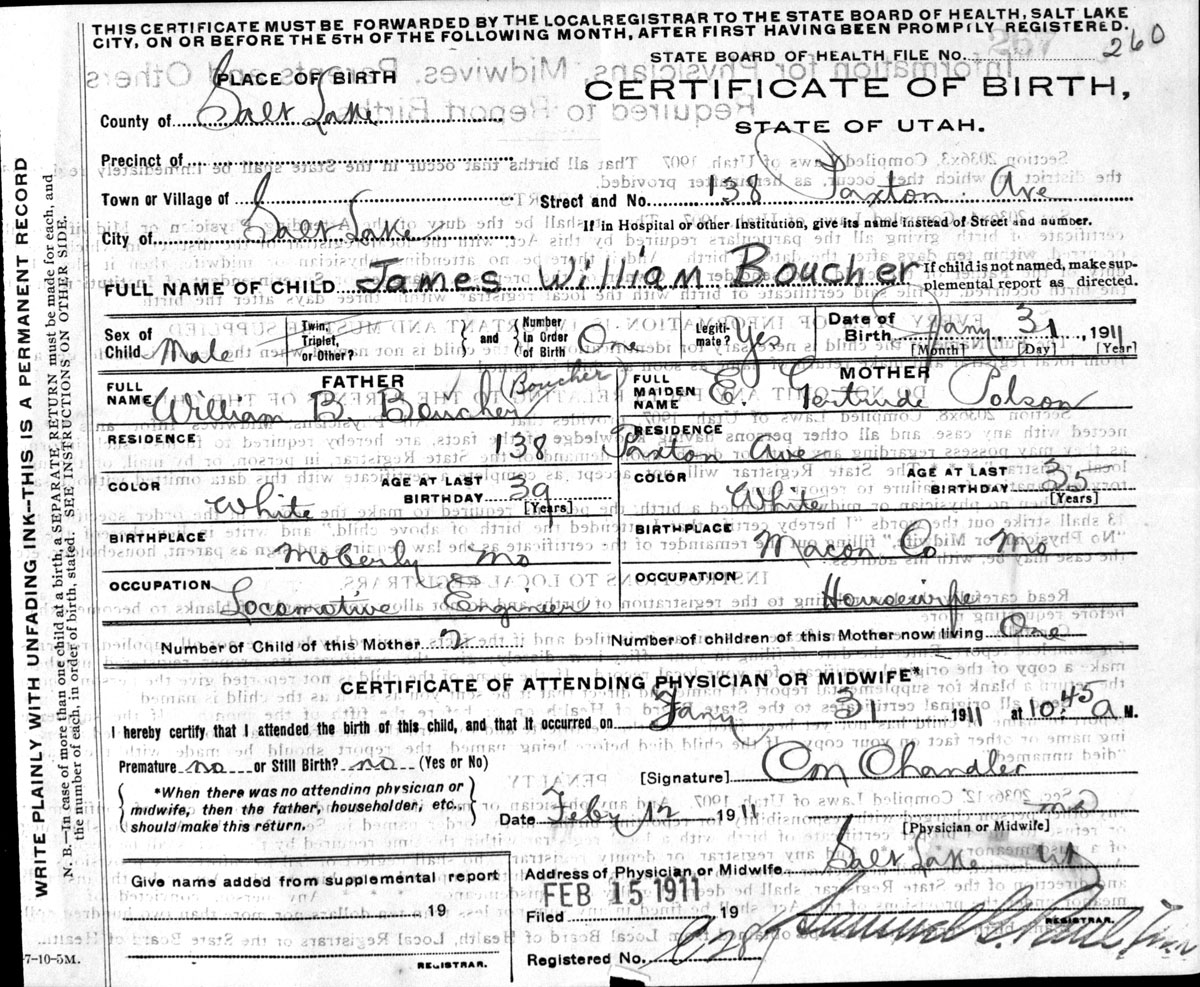 THIS CERTIFICATE MUST BE FORWARDED BY THE LOCAL REGISTRAR TO THE STATE BOARD OF HEALTH, SALT LAKE
CITY, ON OR BEFORE THE 5TH OF THE FOLLOWING MONTH, AFTER FIRST HAVING BEEN PROMPILY REGISTERED.
STATE BOARD OF HEALTH FILE NO. 260
PLACE OF BIRTH
CERTIFICATE OF BIRTH,
County of Salt Lake
STATE OF UTAH.
Precinct of
Town or Village of
Street and No. 138 Paxton Ave
City of Salt Lake
If in Hospital or other Institution, give its name instead of Street and number.
FULL NAME OF CHILD James William Boucher
If child is not named, make sup-
plemental report as directed.
Sex of Child Male
Twin, Triplet, or Other?
and
Number in Order of Birth One
Legiti-mate? Yes
Date of Birth Jany 31, 1911
[Month] [Day] [Year]
FATHER
FULL NAME William B. Boucher (Boucher)
MOTHER
FULL MAIDEN NAME E. Gertrude Polson
RESIDENCE 138 Paxton Ave
RESIDENCE
COLOR White
AGE AT LAST BIRTHDAY 39 [Years]
COLOR White
AGE AT LAST BIRTHDAY 35 [Years]
BIRTHPLACE Moberly Mo
BIRTHPLACE Macon Co Mo
OCCUPATION Locomotive Engineer
OCCUPATION Housewife
Number of Child of this Mother 2
Number of children of this Mother now living One
CERTIFICATE OF ATTENDING PHYSICIAN OR MIDWIFE*
I hereby certify that I attended the birth of this child, and that it occurred on Jany 31 1911 at 10:45 a M.
Premature no or Still Birth? no (Yes or No)
[Signature] Chandler
*When there was no attending physician or
midwife, then the father, householder, etc.,
should make this return.
Date Feby 12 1911
[Physician or Midwife]
Address of Physician or Midwife Salt Lake Ut
Give name added from supplemental report
19
REGISTRAR.
FEB 15 1911
Filed 19
REGISTRAR.
Registered No.
7-10-5M.
WRITE PLAINLY WITH UNFADING INK—THIS IS A PERMANENT RECORD
N. B.—In case of more than one child at a birth, a SEPARATE RETURN must be made for each, and
the number of each, in order of birth, stated. SEE INSTRUCTIONS ON OTHER SIDE.